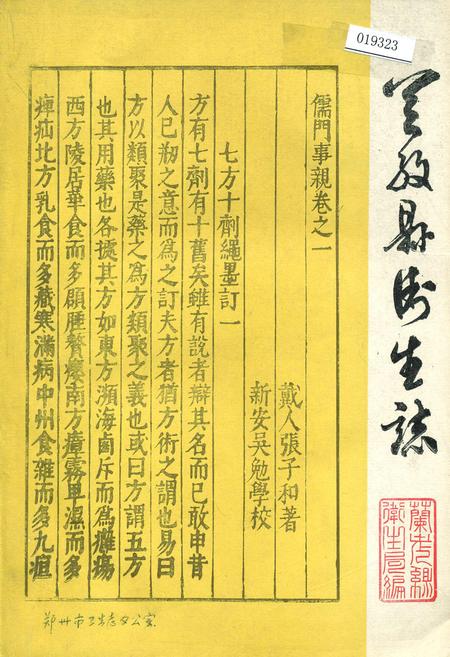 019323
蘭考縣衛生誌
蘭考縣
衛生局編
儒門事親卷之一
戴人張子和著
新安吳勉學校
七方十劑繩墨訂一
方有七劑有十舊矣雖有說者辯其名而已敢申昔
人已刱之意而爲之訂夫方者猶方術之謂也易曰
方以類聚是藥之爲方類聚之義也或曰方謂五方
也其用藥也各據其方如東方瀕海鹵斥而爲癰瘍
西方陵居華食而多頤腫贅癭南方瘴霧卑濕而多
痺疝北方乳食而多藏寒滿病中州食雜而多九疸
郑州市卫生志办公室